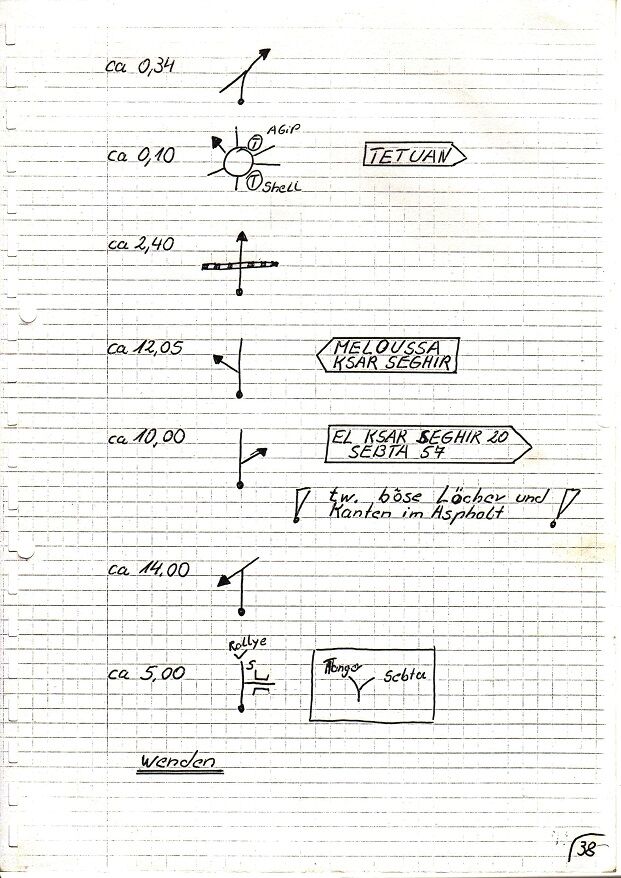 ca 0,34
ca 0,10
AGiP
T
T Shell
TETUAN
ca 2,40
ca 12,05
MELOUSSA
KSAR SEGHIR
ca 10,00
EL KSAR SEGHIR 20
SEBTA 57
! tw. böse Löcher und !
Kanten im Asphalt
ca 14,00
Rallye
ca 5,00
S
Tanger
Sebta
Wenden
38